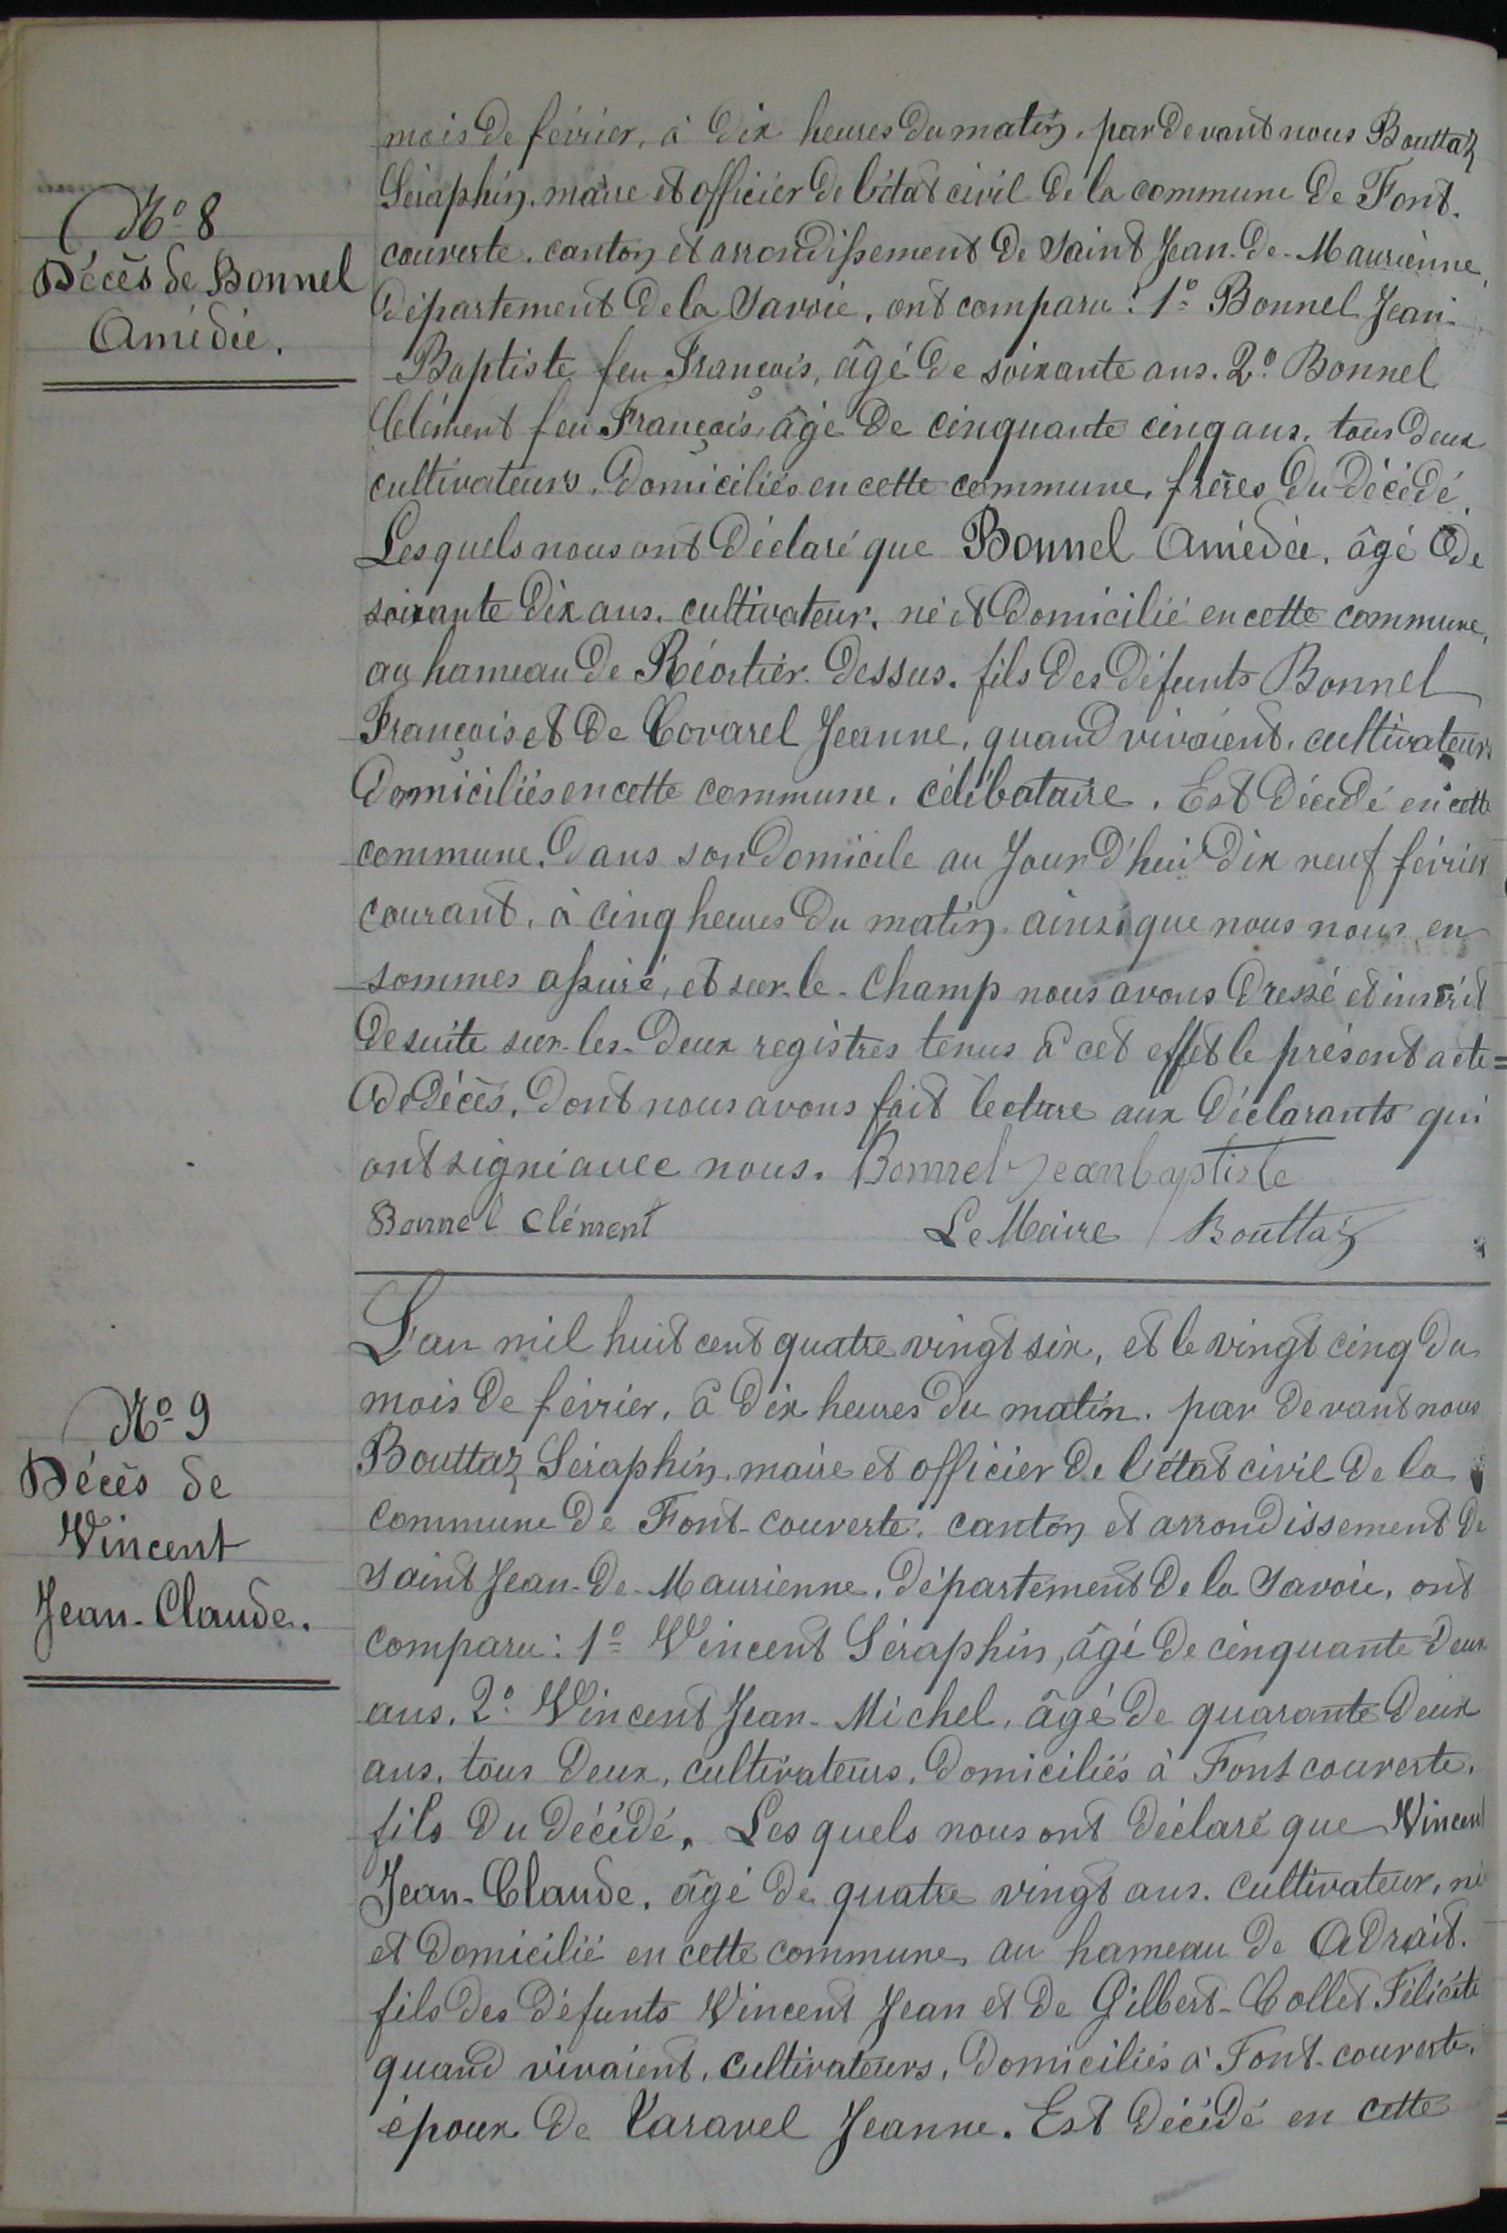 mois de février, à dix heures du matin, par devant nous Bouttaz
Séraphin, maire et officier de l'état civil de la commune de Font-
couverte, canton et arrondissement de Saint Jean-de-Maurienne,
département de la Savoie, ont comparu: 1º Bonnel Jean-
Baptiste feu François, âgé de soixante ans. 2º Bonnel
Clément feu François, âgé de cinquante cinq ans, tous deux
cultivateurs, domiciliés en cette commune, frères du décédé.
Les quels nous ont déclaré que Bonnel Amédée, âgé de
soixante dix ans, cultivateur, né et domicilié en cette commune,
au hameau de Réortier-dessus, fils des défunts Bonnel
François et de Covarel Jeanne, quand vivaient, cultivateurs
domiciliés en cette commune, célibataire. Est décédé en cette
commune, dans son domicile au jour d'hui dix neuf février
courant, à cinq heures du matin, ainsi que nous nous en
sommes assuré, et sur-le-champ nous avons dressé et inscrit
de suite sur-les-deux registres tenus à cet effet le présent acte=
de décès, dont nous avons fait lecture aux déclarants qui
ont signé avec nous. Bonnel Jean baptiste
Bonnel Clément Le Maire Bouttaz
Nº 8
Décès de Bonnel
Amédée.
L'an mil huit cent quatre vingt six, et le vingt cinq du
mois de février, à dix heures du matin, par devant nous
Bouttaz Séraphin, maire et officier de l'état civil de la
commune de Font-couverte, canton et arrondissement de
Saint Jean-de-Maurienne, département de la Savoie, ont
comparu: 1º Vincent Séraphin, âgé de cinquante deux
ans. 2º Vincent Jean-Michel, âgé de quarante deux
ans, tous deux, cultivateurs, domiciliés à Font couverte,
fils du décédé. Les quels nous ont déclaré que Vincent
Jean-Claude, âgé de quatre vingt ans, cultivateur, né
et domicilié en cette commune, au hameau de Adrait,
fils des défunts Vincent Jean et de Gilbert-Collet Félicité
quand vivaient, cultivateurs, domiciliés à Font-couverte,
époux de Varavel Jeanne. Est décédé en cette
Nº 9
Décès de
Vincent
Jean-Claude.